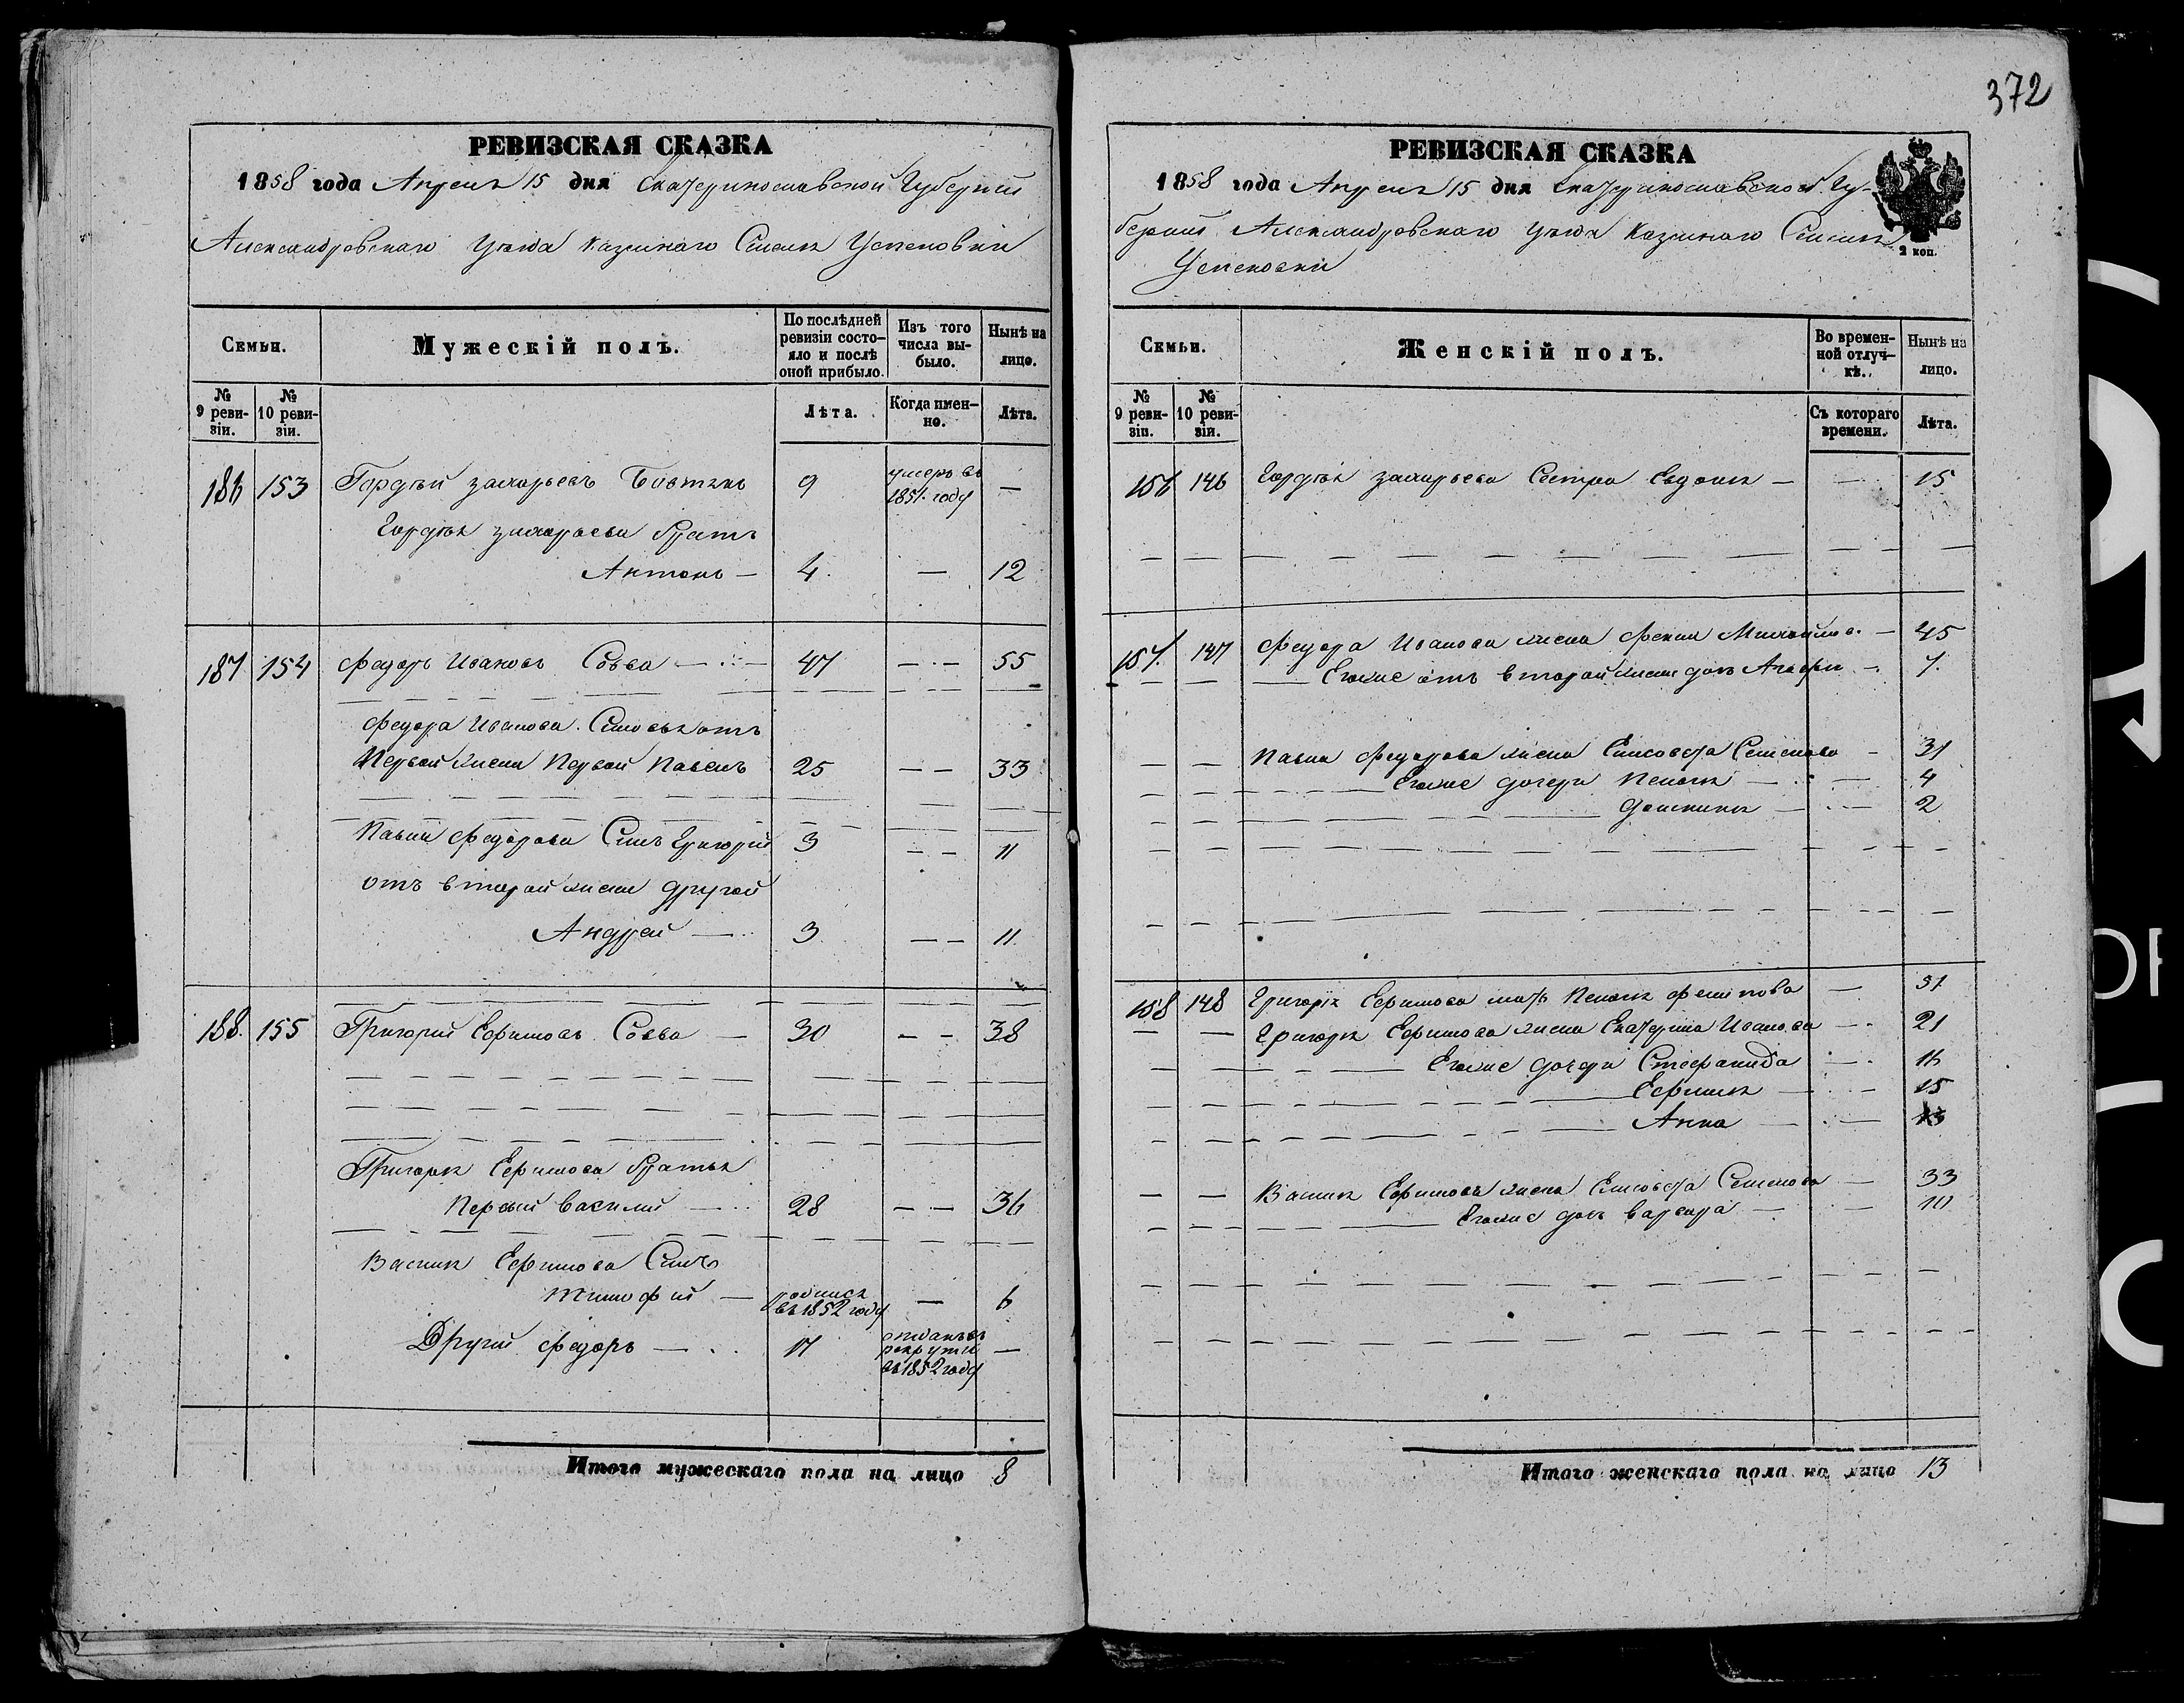 РЕВИЗСКАЯ СКАЗКА
1858 года Апреля 15 дня Екатеринославской Губернии
Александровскаго уезда казенаго Селенія Успеновки
Семьи.
Мужескій полъ.
По послѣдней ревизіи состояло и послѣ оной прибыло.
Изъ того числа выбыло.
Нынѣ на лицо.
№ 9 ревизіи.
№ 10 ревизіи.
Лѣта.
Когда именно.
Лѣта.
186 153 Гордѣй захарьевъ 9 умеръ въ 1851 году —
Гордѣя захарьева братъ
Антонъ — 4. — 12
187 154 федоръ Ивановъ Совва — 47 — 55
федора Иванова Сыновья отъ
Первой жены Первой Павелъ 25 — — 33
Павла федорова Сынъ Григорій 3 — — 11
отъ второй жены другой
Андрей — 3 — — 11
188. 155 Григорий Ефимовъ Совва — 30 — — 38
Григорія Ефимова братья
Первый василий — 28 — — 36
Василя Ефимова Сынъ
тимофий — родился въ 1852 году — 6
Другий федоръ — 17 отданъ въ рекруты въ 1852 году —
Итого мужескаго пола на лицо 8
372
РЕВИЗСКАЯ СКАЗКА
1858 года Апреля 15 дня Екатеринославской Гу-
бернии Александровскаго уезда Казенаго Селенія
Успеновки
2 коп.
Семьи.
Женскій полъ.
Во временной отлучкѣ.
Нынѣ на лицо.
№ 9 ревизіи.
№ 10 ревизіи.
Съ котораго времени.
Лѣта.
156 146 Гордѣя захарьева Сестра Евдокия — — 15
157. 147 федора Иванова жена фекла Михайлов. — 45
Егоже отъ второй жены дочь Агафия — 7.
Павла федорова жена Елисовета Семенова — 31
Егоже дочери Пелагия — 4
Домникия — 2
158 148 Григорія Ефимова мать Пелагия филипова — 51
Григорія Ефимова жена Екатерина Иванова — 21
Егоже дочери Стефанида — 16
Ефимия — 15
Анна — 13
Василя Ефимова жена Елисовета Семенова — 33
Егоже дочь варвара — 10
Итого женскаго пола на лицо 13